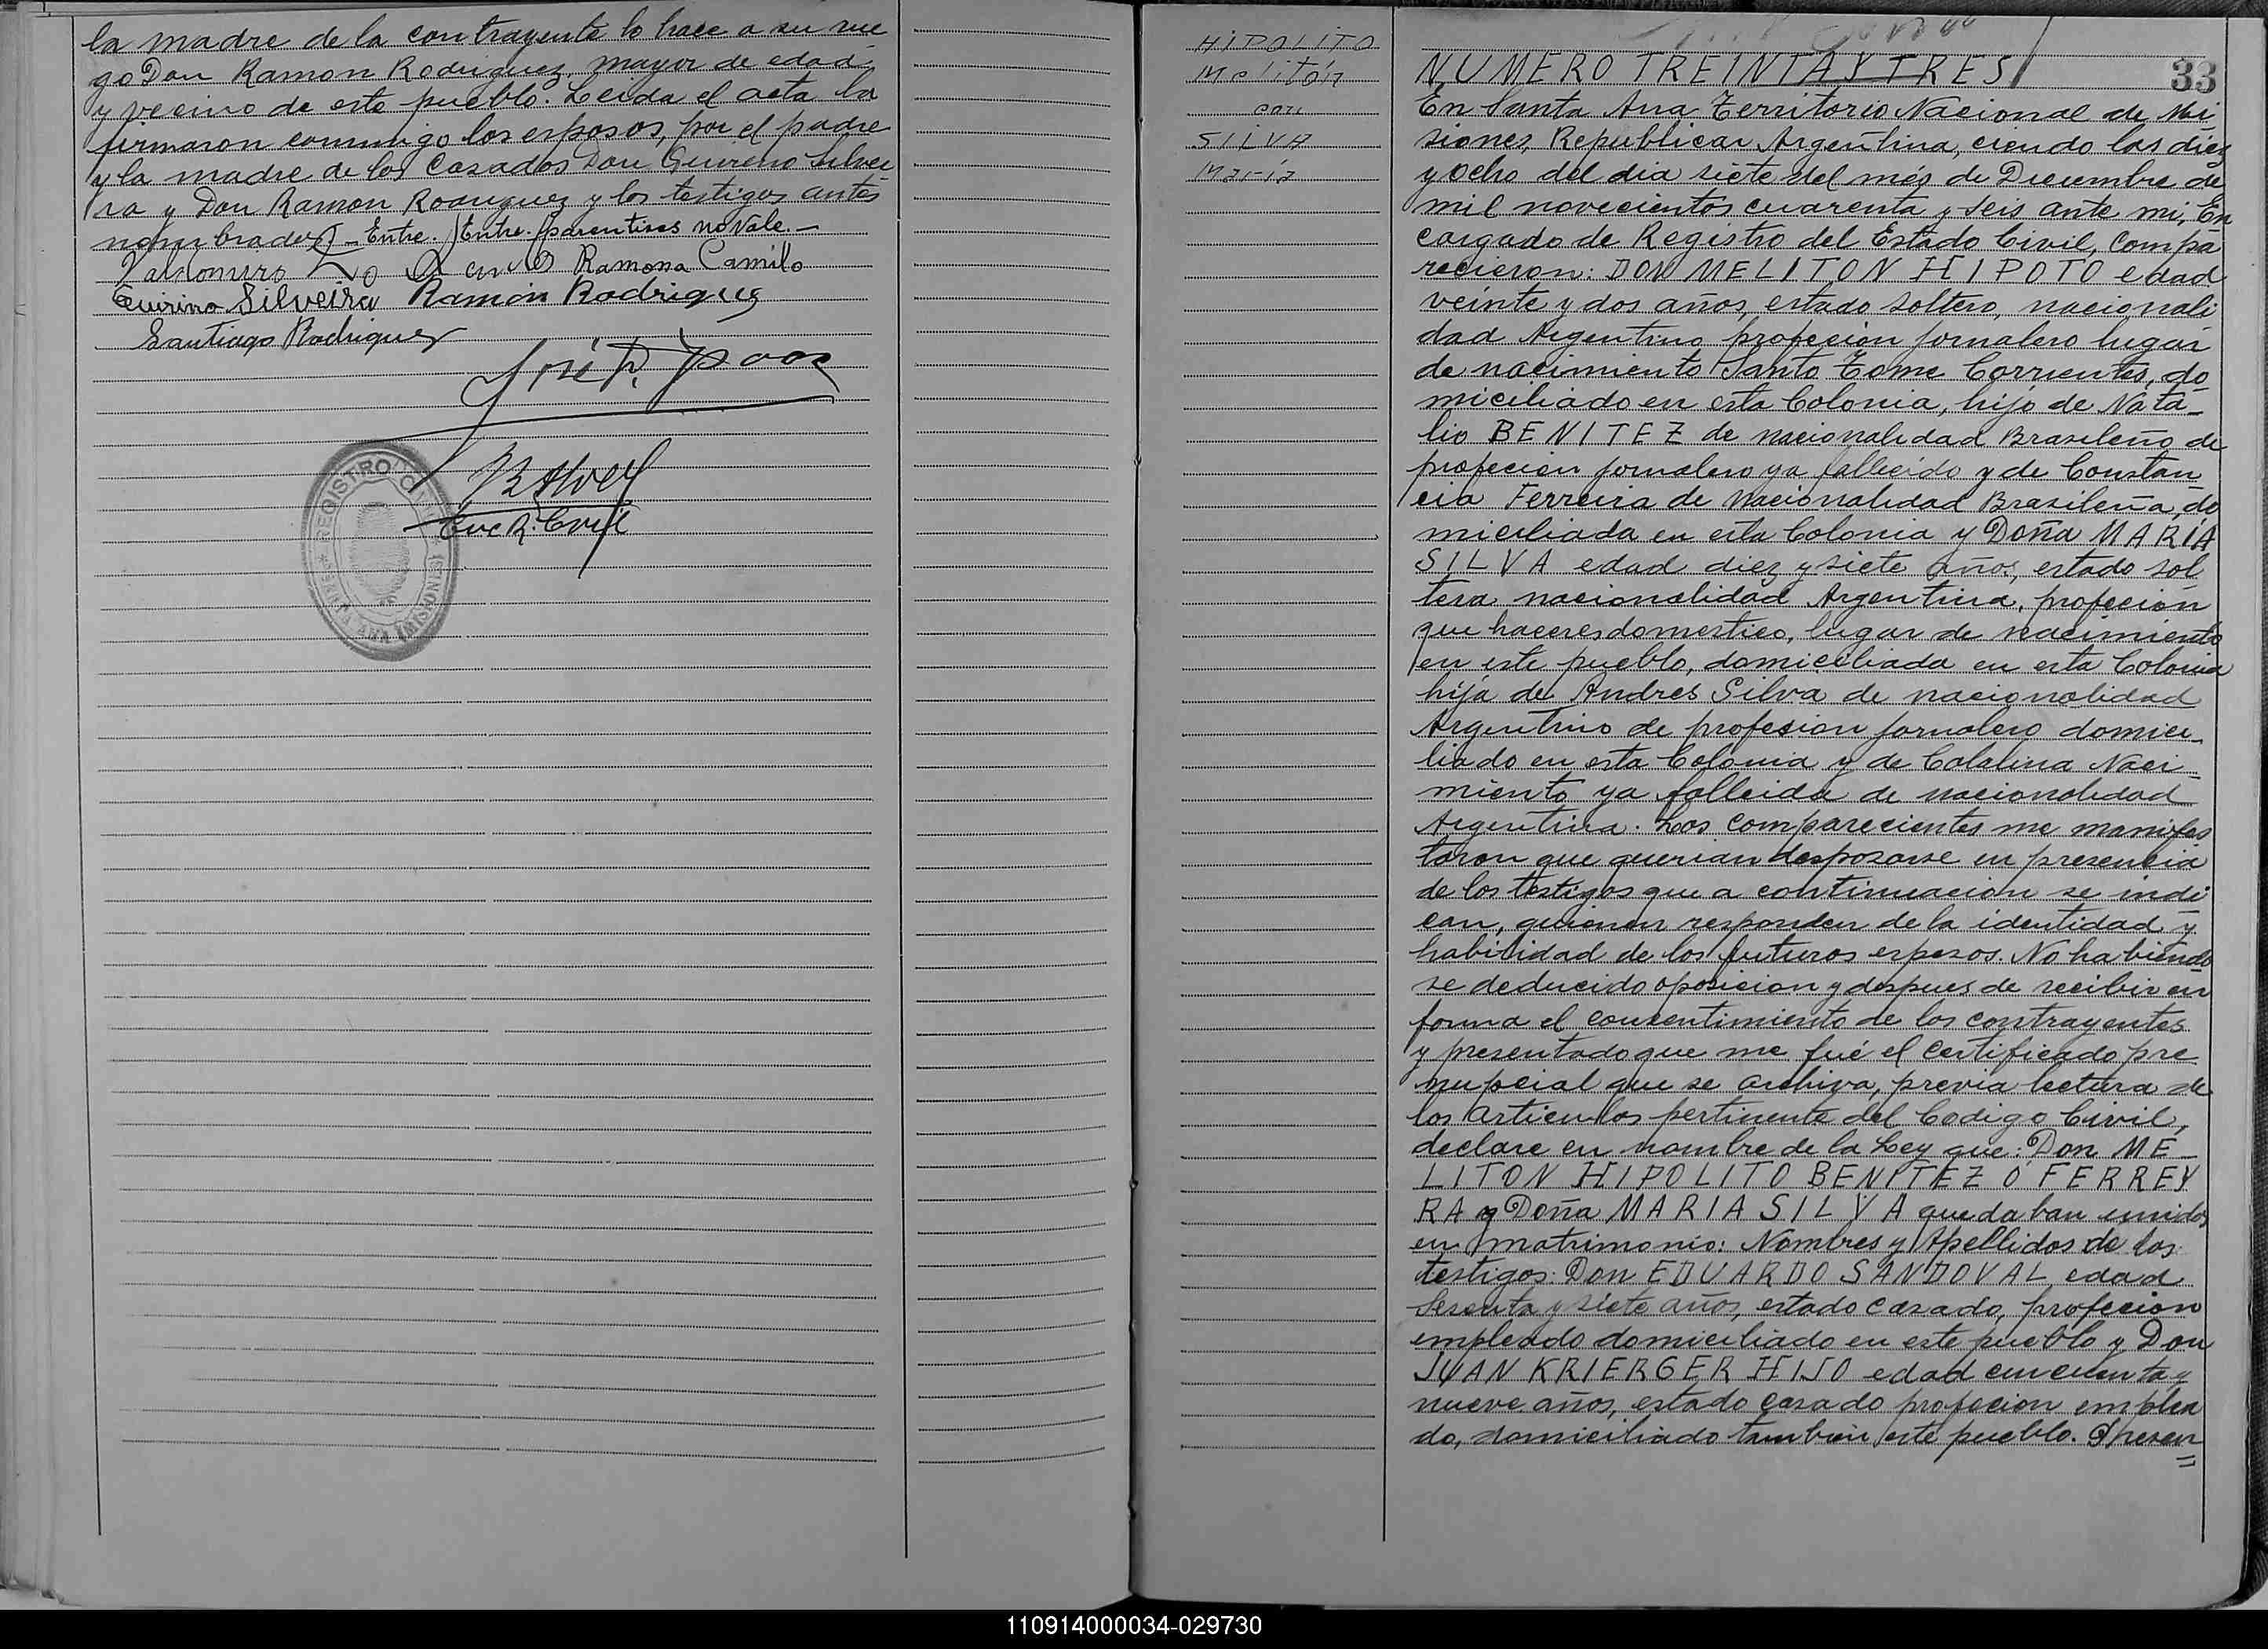 la madre de la contrayente lo hace a su rue
go Don Ramon Rodriguez, mayor de edad
y vecino de este pueblo. Leida el acta la
firmaron conmigo los esposos, por el padre
y la madre de los casados Don Quirino Silvei
ra y Don Ramon Rodriguez y los testigos antes
nombrados - Entre. Entre. parentisis no Vale.-
Ramona Camilo
Quirino Silveira Ramón Rodriguez
Santiago Rodriguez
José P.
Enc R. Civil
REGISTRO CIVIL
SANTA ANA (MISIONES)
HIPOLITO
Melitón
con
SILVA
María
33
NUMERO TREINTA Y TRES
En Santa Ana Territorio Nacional de Mi
siones, Republica Argentina, ciendo las diez
y ocho del dia siete del mes de Diciembre de
mil novecientos cuarenta y seis ante mi, En
cargado de Registro del Estado Civil, compa
recieron: DON MELITON HIPOTO edad
veinte y dos años, estado soltero, nacionali
dad Argentino profecion jornalero lugar
de nacimiento Santo Tome Corrientes, do
miciliado en esta Colonia, hijo de Nata_
lio BENITEZ de nacionalidad Brasileño de
profecion jornalero ya fallecido y de Constan
cia Ferreira de nacionalidad Brasileña, do
miciliada en esta Colonia y Doña MARIA
SILVA edad diez y siete años, estado sol
tera nacionalidad Argentina, profecion
que haceres domestico, lugar de nacimiento
en este pueblo, domiciliada en esta Colonia
hija de Andres Silva de nacionalidad
Argentino de profesion jornalero domici_
liado en esta Colonia y de Catalina Naci_
miento ya fallecida de nacionalidad
Argentina. Los comparecientes me manifes
taron que querian desposarse en presencia
de los testigos que a continuacion se indi
can, quienen responden de la identidad y
habilidad de los futuros esposos. No habiendo
se deducido oposicion y despues de recibir en
forma el consentimiento de los contrayentes
y presentado que me fué el certificado pre
nupcial que se archiva, previa lectura de
los articulos pertinente del Codigo Civil,
declare en nombre de la Ley que: Don ME_
LITON HIPOLITO BENITEZ O FERREY
RA y Doña MARIA SILVA quedaban unidos
en matrimonio: Nombres y Apellidos de los
testigos: Don EDUARDO SANDOVAL edad
Sesenta y siete años, estado casado, profecion
empleado domiciliado en este pueblo y Don
JUAN KRIERGER HIJO edad cincuenta y
nueve años, estado casado profecion emplea
do, domiciliado tambien este pueblo. Presen
110914000034-029730